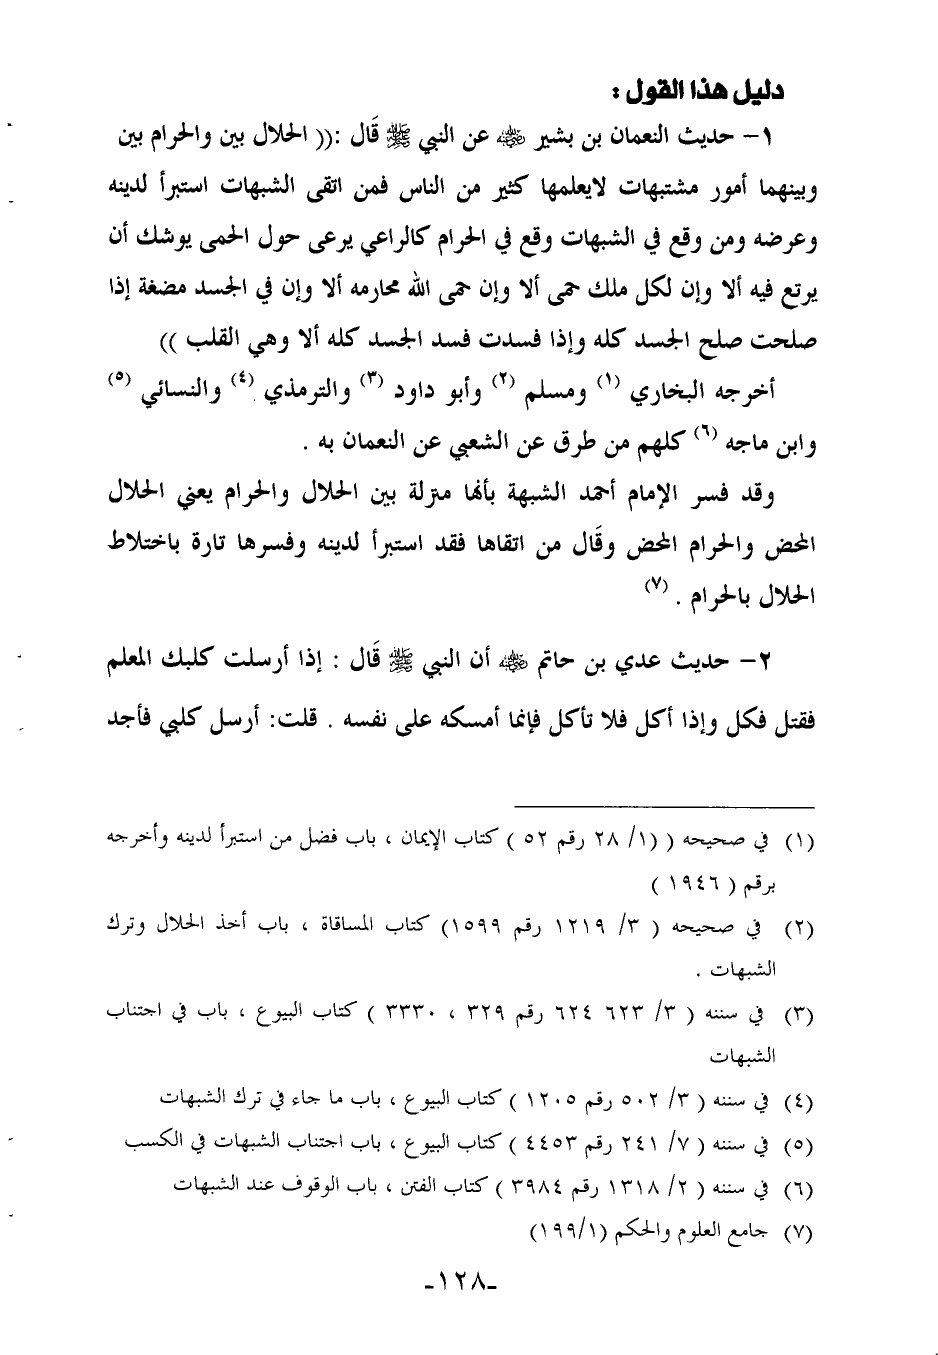 دليل هذا القول :
١- حديث النعمان بن بشير ﵁ عن النبي ﷺ قَال :(( الحلال بين والحرام بين
وبينهما أمور مشتبهات لايعلمها كثير من الناس فمن اتقى الشبهات استبرأ لدينه
وعرضه ومن وقع في الشبهات وقع في الحرام كالراعي يرعى حول الحمى يوشك أن
يرتع فيه ألا وإن لكل ملك حمى ألا وإن حمى الله محارمه ألا وإن في الجسد مضغة إذا
صلحت صلح الجسد كله وإذا فسدت فسد الجسد كله ألا وهي القلب ))
أخرجه البخاري (١) ومسلم (٢) وأبو داود (٣) والترمذي (٤) والنسائي (٥)
وابن ماجه (٦) كلهم من طرق عن الشعبي عن النعمان به .
وقد فسر الإمام أحمد الشبهة بأنها منزلة بين الحلال والحرام يعني الحلال
المحض والحرام المحض وقَال من اتقاها فقد استبرأ لدينه وفسرها تارة باختلاط
الحلال بالحرام . (٧)
٢- حديث عدي بن حاتم ﵁ أن النبي ﷺ قَال : إذا أرسلت كلبك المعلم
فقتل فكل وإذا أكل فلا تأكل فإنما أمسكه على نفسه . قلت: أرسل كلبي فأجد
(١) في صحيحه ( (١/ ٢٨ رقم ٥٢ ) كتاب الإيمان ، باب فضل من استبرأ لدينه وأخرجه
برقم ( ١٩٤٦ )
(٢) في صحيحه ( ٣/ ١٢١٩ رقم ١٥٩٩) كتاب المساقاة ، باب أخذ الحلال وترك
الشبهات .
(٣) في سننه ( ٣/ ٦٢٣ ٦٢٤ رقم ٣٢٩ ، ٣٣٣٠ ) كتاب البيوع ، باب في اجتناب
الشبهات
(٤) في سننه ( ٣/ ٥٠٢ رقم ١٢٠٥ ) كتاب البيوع ، باب ما جاء في ترك الشبهات
(٥) في سننه ( ٧/ ٢٤١ رقم ٤٤٥٣ ) كتاب البيوع ، باب اجتناب الشبهات في الكسب
(٦) في سننه ( ٢/ ١٣١٨ رقم ٣٩٨٤ ) كتاب الفتن ، باب الوقوف عند الشبهات
(٧) جامع العلوم والحكم (١/١٩٩)
-١٢٨-